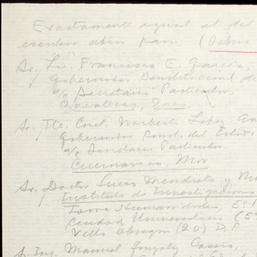 Exactamente igual al del
escribir abra para (
Sr. Lic. Francisco E. García,
Gobernador Constitucional d
c/o Secretario Particular
Zacatecas, Zac.
Sr. Dr. Corl. Norberto López
Gobernador Const. del Estado
c/o Secretario Particular
Cuernavaca, Mor
Sr. Doctor Lucio Mendieta y
Instituto de Investigaciones
Torre Humanidades, 5º
Ciudad Universitaria (5º
Villa Obregón (20) D.F.
Sr. Ing. Manuel González